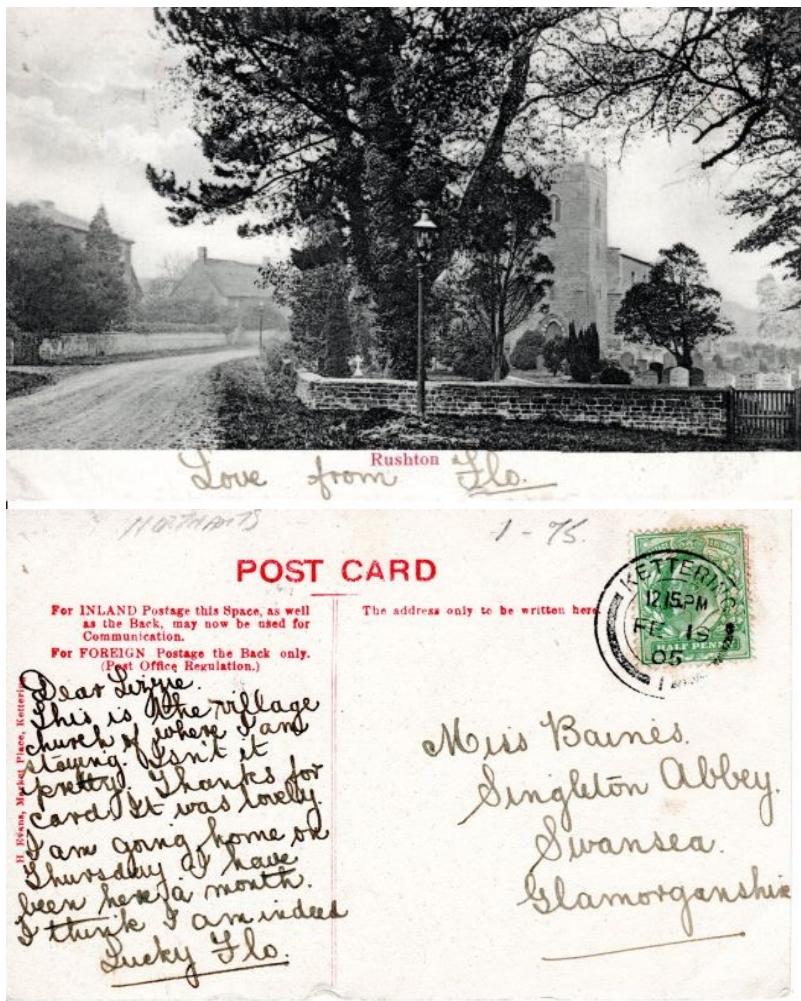 Rushton
Love from Flo.
NORTHANTS
1-75.
POST CARD
For INLAND Postage this Space, as well
as the Back, may now be used for
Communication.
For FOREIGN Postage the Back only.
(Post Office Regulation.)
The address only to be written here.
KETTERING
12.15.PM
FE 19
05
HALF PENNY
H Evans, Market Place, Kettering
Dear Lizzie.
This is the village
church of where I am
staying. Isn't it
pretty. Thanks for
card. It was lovely.
I am going home on
Thursday I have
been here a month.
I think I am indeed
Lucky Flo.
Miss Baines.
Singleton Abbey.
Swansea.
Glamorganshire